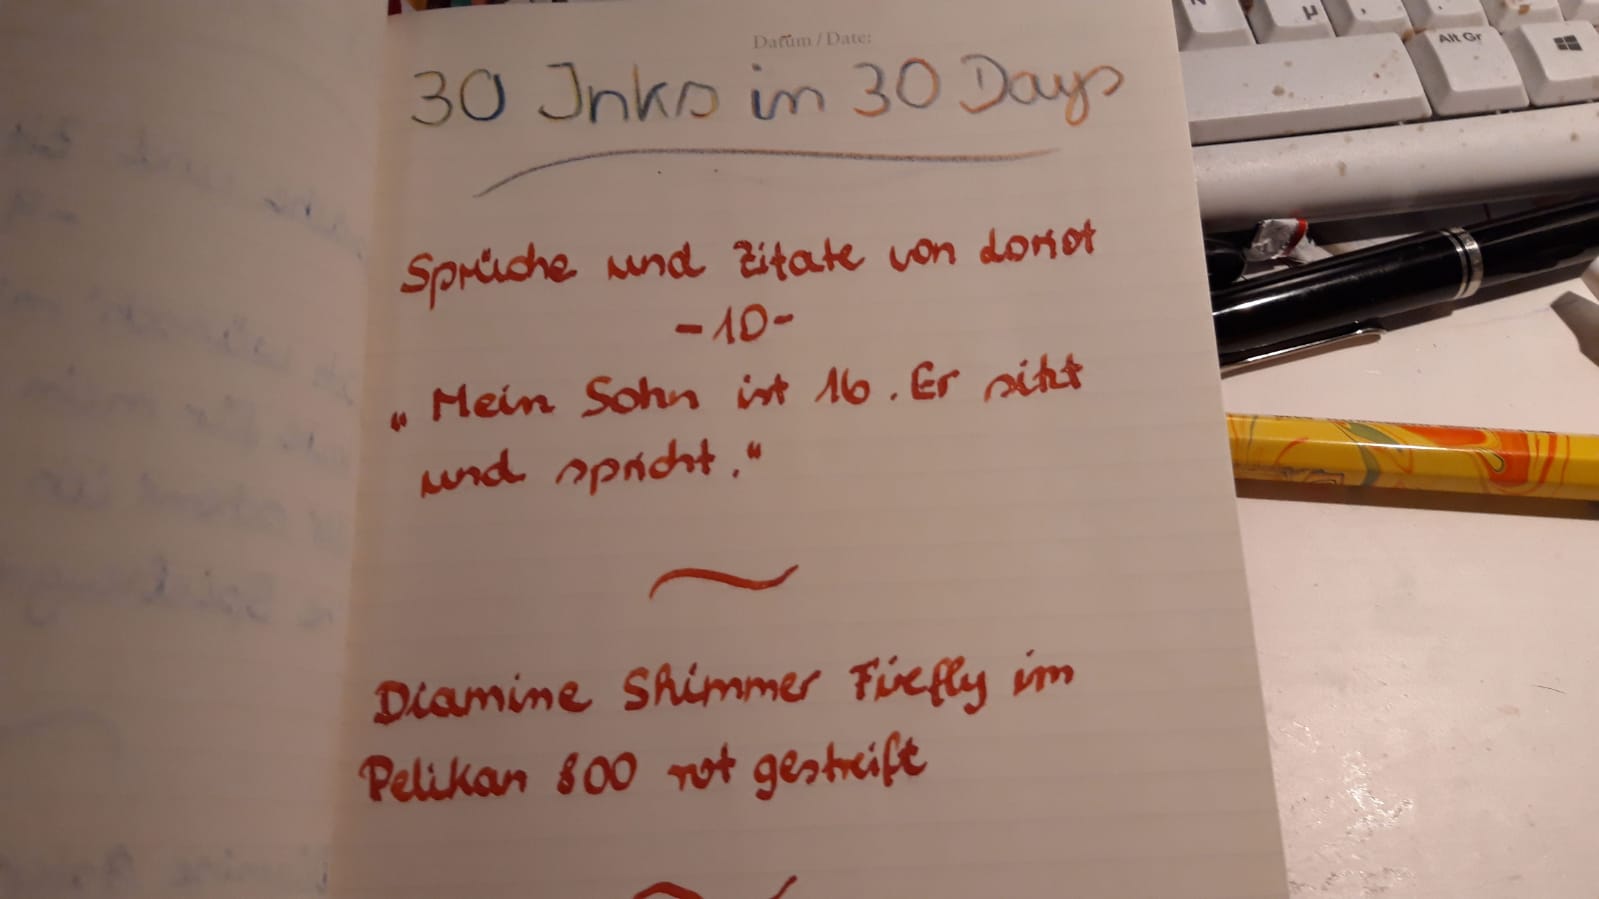 Datum / Date:
30 Inks in 30 Days
Sprüche und Zitate von Loriot
-10-
„Mein Sohn ist 16. Er sitzt
und spricht."
Diamine Shimmer Firefly im
Pelikan 800 rot gestreift
N
µ
Alt Gr